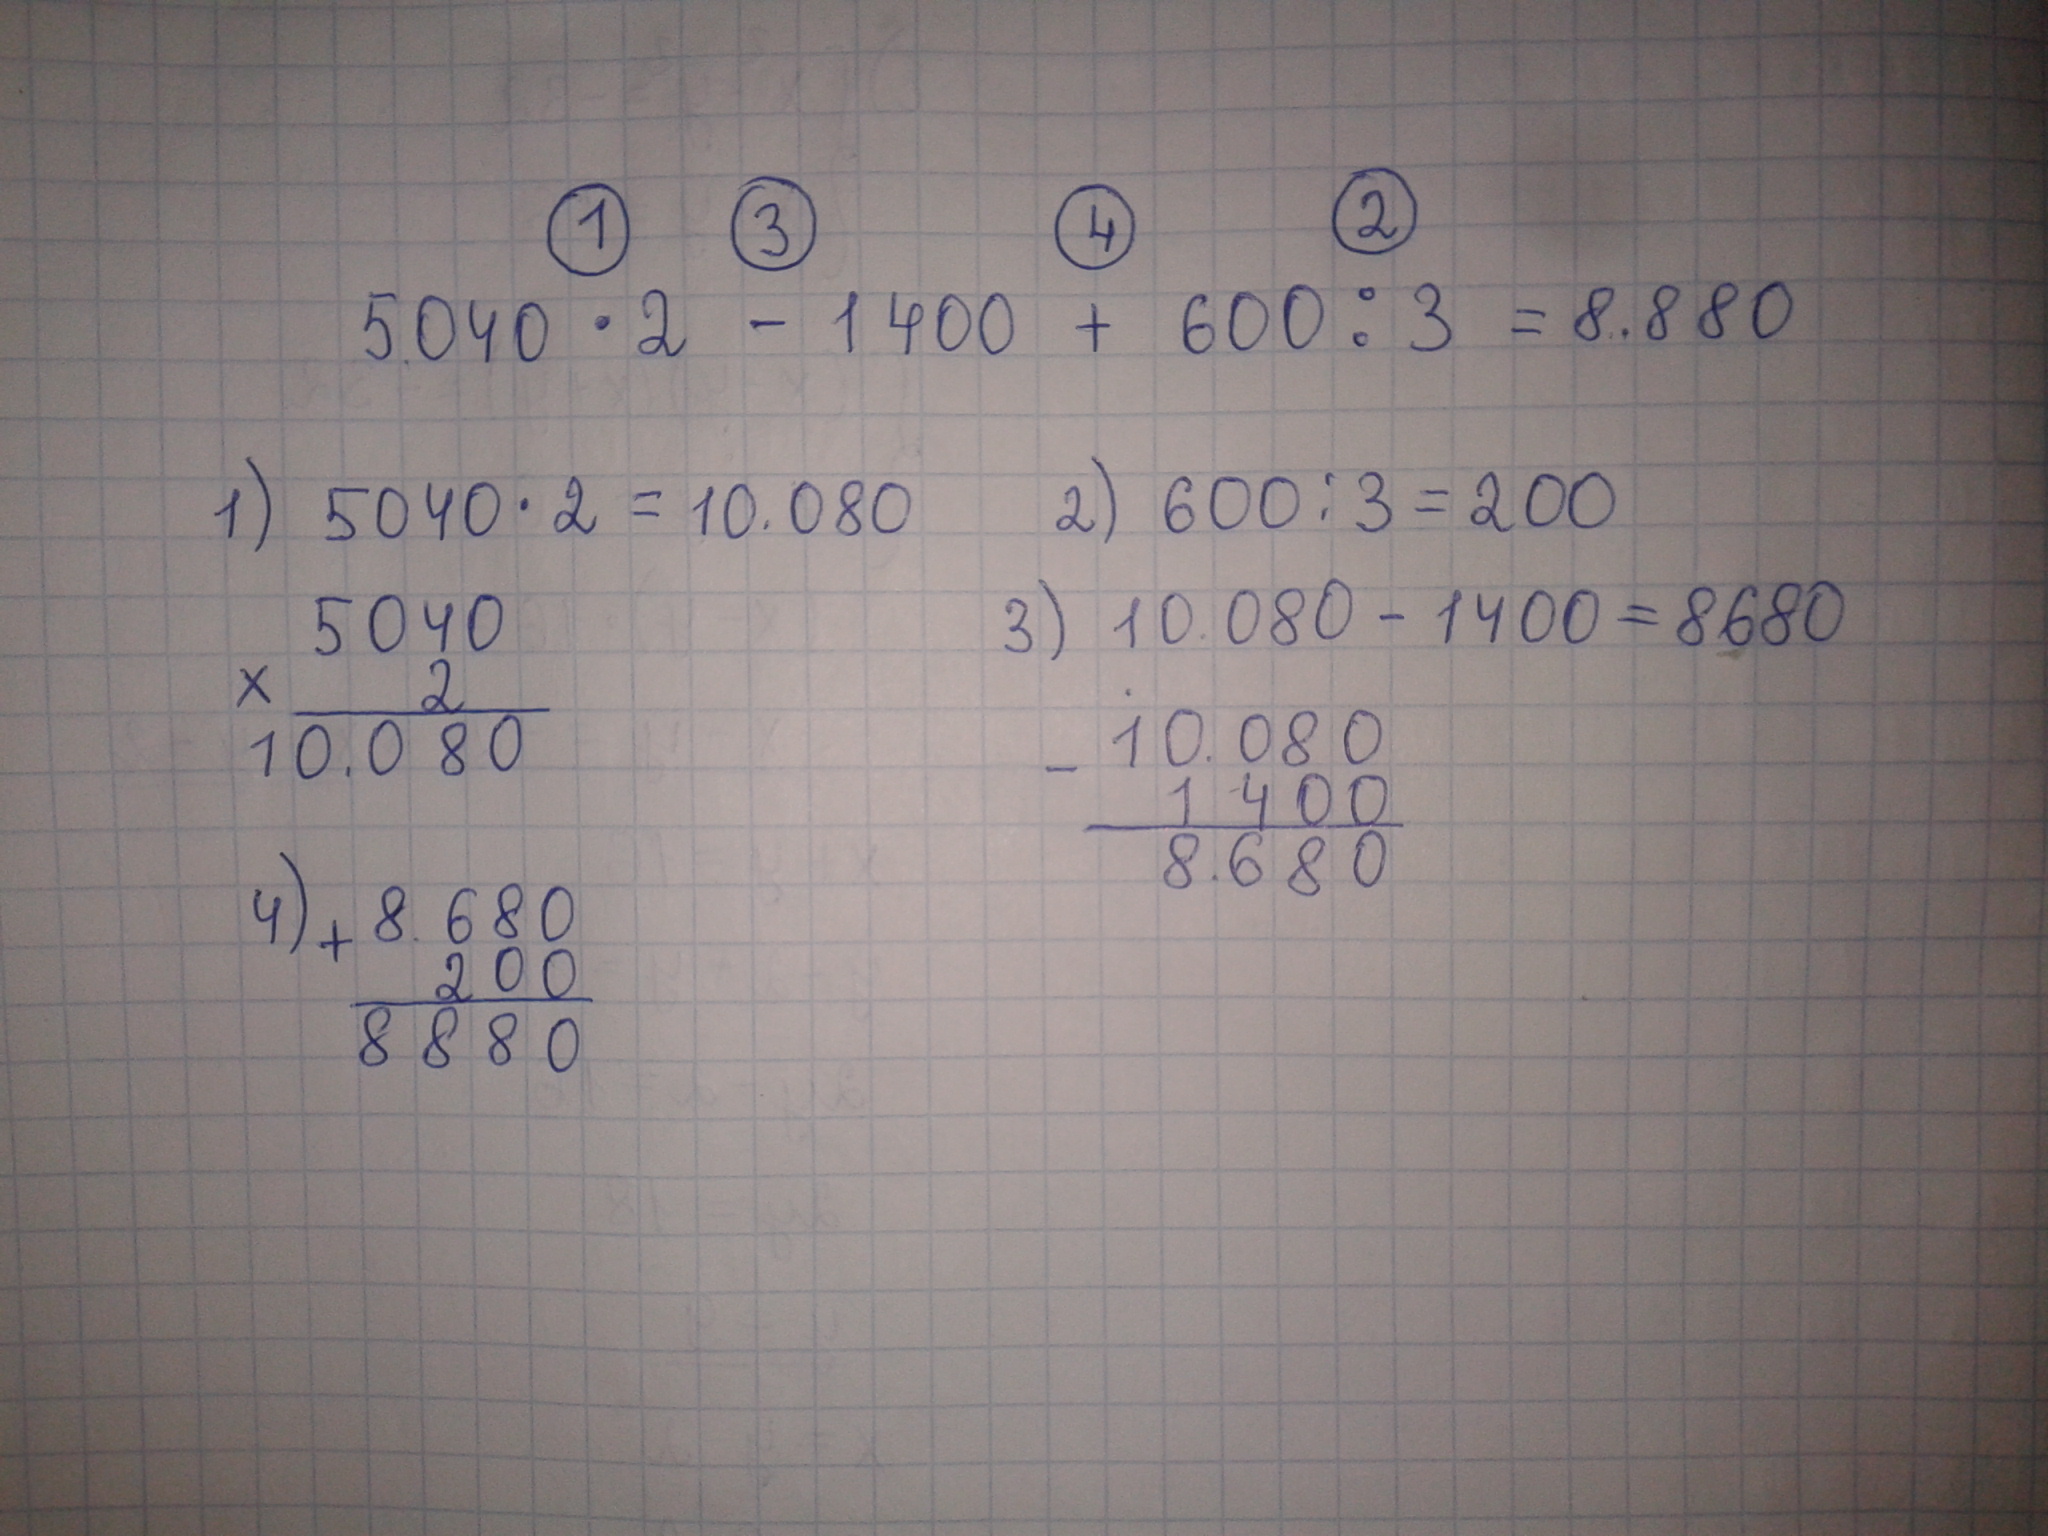 ① ③ ④ ②
5.040 · 2 - 1400 + 600 : 3 = 8.880
1) 5040 · 2 = 10.080
5040
× 2
10.080
2) 600 : 3 = 200
3) 10.080 - 1400 = 8680
- 10.080
1 400
8.680
4) + 8.680
200
8880